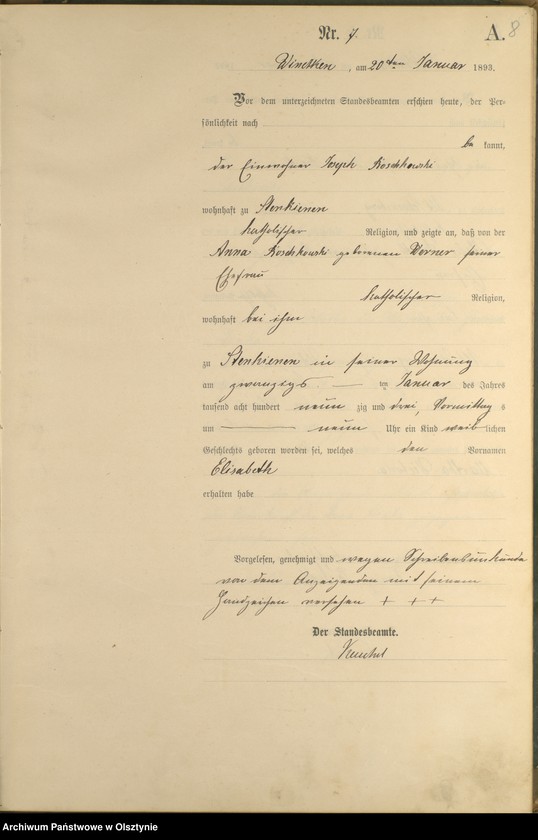 Nr. 7.
A. 8
, am 20ten Januar 1893.
Vor dem unterzeichneten Standesbeamten erschien heute, der Per-
sönlichkeit nach
be kannt,
der Einwohner Joseph Koschkowski
wohnhaft zu Stenkienen
katholischer Religion, und zeigte an, daß von der
Anna Koschkowski geborenen Worner seiner
Ehefrau
katholischer Religion,
wohnhaft bei ihm
zu Stenkienen in seiner Wohnung
am zwanzigs ten Januar des Jahres
tausend acht hundert neun zig und drei, Vormittag s
um neun Uhr ein Kind weib lichen
Geschlechts geboren worden sei, welches den Vornamen
Elisabeth
erhalten habe
Vorgelesen, genehmigt und wegen Schreibensunkunde
von dem Anzeigenden mit seinem
Handzeichen versehen + + +
Der Standesbeamte.
Archiwum Państwowe w Olsztynie